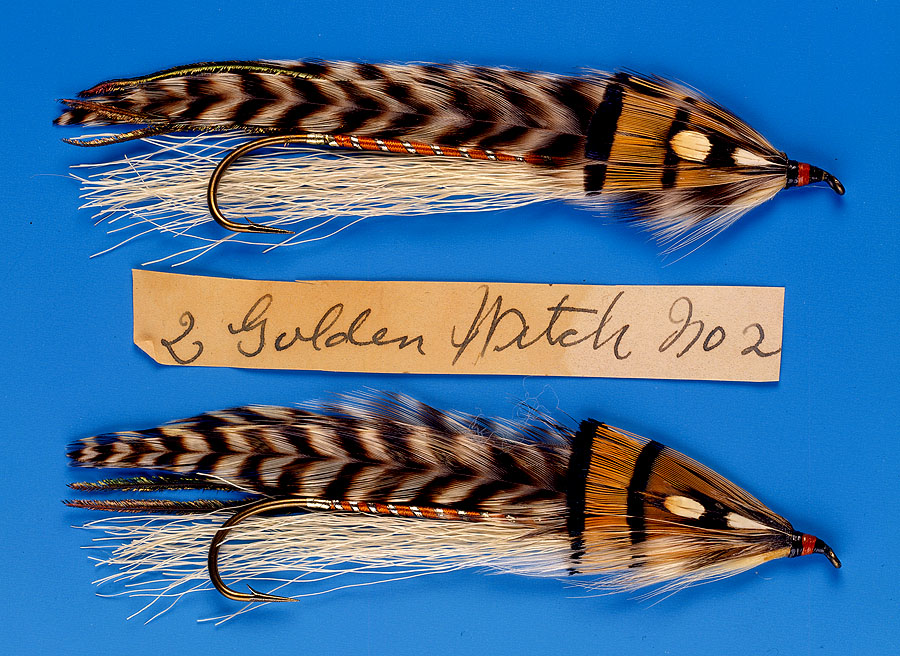 2 Golden Witch No 2